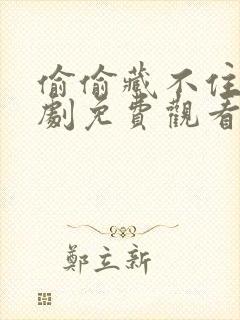 偷偷藏不住
劇免費觀看
鄭立新